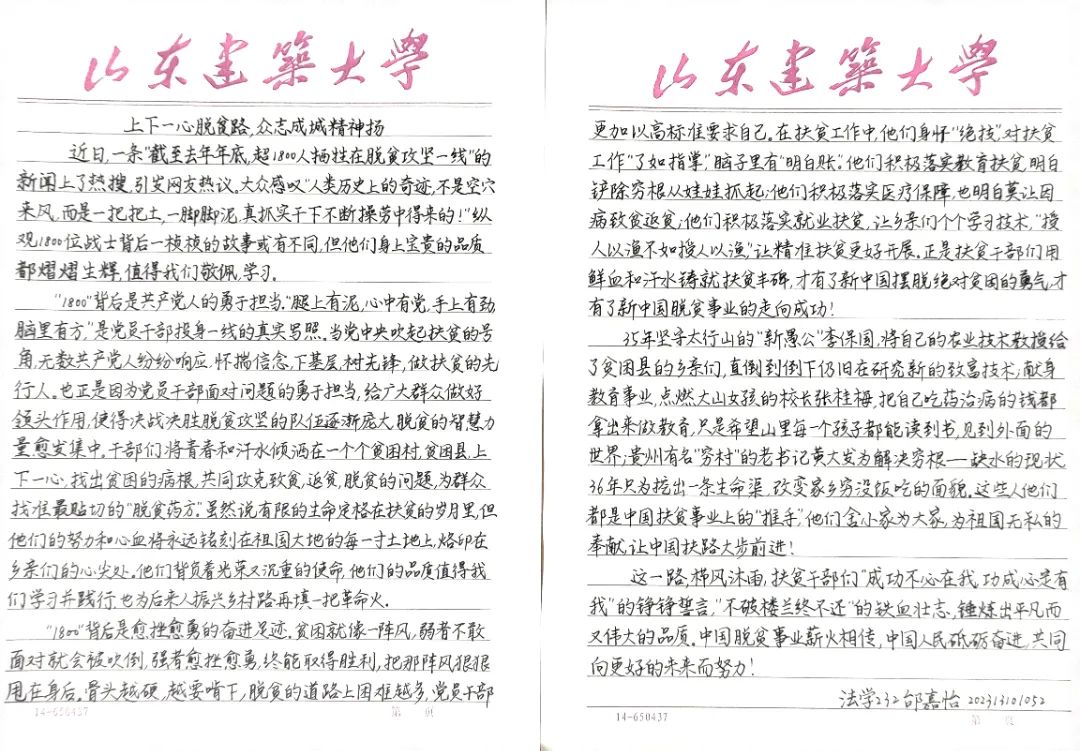 山东建築大學
上下一心脱贫路,众志成城精神扬
近日,一条"截至去年年底,超1800人牺牲在脱贫攻坚一线"的
新闻上了热搜,引发网友热议。大众感叹"人类历史上的奇迹,不是空穴
来风,而是一把把土,一脚脚泥,真抓实干下不断操劳中得来的!"纵
观1800位战士背后一桢桢的故事或有不同,但他们身上宝贵的品质
都熠熠生辉,值得我们敬佩,学习。
"1800"背后是共产党人的勇于担当。"腿上有泥,心中有党,手上有劲,
脑里有方,"是党员干部投身一线的真实写照。当党中央吹起扶贫的号
角,无数共产党人纷纷响应,怀揣信念,下基层,树先锋,做扶贫的先
行人。也正是因为党员干部面对问题的勇于担当,给广大群众做好
领头作用,使得决战决胜脱贫攻坚的队伍逐渐庞大,脱贫的智慧力
量愈发集中。干部们将青春和汗水倾洒在一个个贫困村,贫困县,上
下一心,找出贫困的病根,共同攻克致贫,返贫,脱贫的问题,为群众
找准最贴切的"脱贫药方"。虽然说有限的生命定格在扶贫的岁月里,但
他们的努力和心血将永远铭刻在祖国大地的每一寸土地上,烙印在
乡亲们的心尖处。他们背负着光荣又沉重的使命,他们的品质值得我
们学习并践行,也为后来人振兴乡村路再填一把革命火。
"1800"背后是愈挫愈勇的奋进足迹。贫困就像一阵风,弱者不敢
面对就会被吹倒,强者愈挫愈勇,终能取得胜利,把那阵风狠狠
甩在身后。骨头越硬,越要啃下,脱贫的道路上困难越多,党员干部
14-650437 第 页
山东建築大學
更加以高标准要求自己。在扶贫工作中,他们身怀"绝技",对扶贫
工作"了如指掌",脑子里有"明白账"。他们积极落实教育扶贫,明白
铲除穷根从娃娃抓起;他们积极落实医疗保障,也明白莫让因
病致贫返贫;他们积极落实就业扶贫,让乡亲们个个学习技术,"授
人以渔不如授人以渔",让精准扶贫更好开展。正是扶贫干部们用
鲜血和汗水铸就扶贫丰碑,才有了新中国摆脱绝对贫困的勇气,才
有了新中国脱贫事业的走向成功!
35年坚守太行山的"新愚公"李保国,将自己的农业技术教授给
了贫困县的乡亲们,直倒到倒下仍旧在研究新的致富技术;献身
教育事业,点燃大山女孩的校长张桂梅,把自己吃药治病的钱都
拿出来做教育,只是希望山里每一个孩子都能读到书,见到外面的
世界;贵州有名"穷村"的老书记黄大发为解决穷根——缺水的现状,
36年只为挖出一条生命渠,改变家乡穷没饭吃的面貌。这些人他们
都是中国扶贫事业上的"推手",他们舍小家为大家,为祖国无私的
奉献,让中国扶路大步前进!
这一路,栉风沐雨,扶贫干部们"成功不必在我,功成必定有
我"的铮铮誓言,"不破楼兰终不还"的铁血壮志,锤炼出平凡而
又伟大的品质。中国脱贫事业薪火相传,中国人民砥砺奋进,共同
向更好的未来而努力!
法学232 邰嘉怡 202313101052
14-650437 第 页